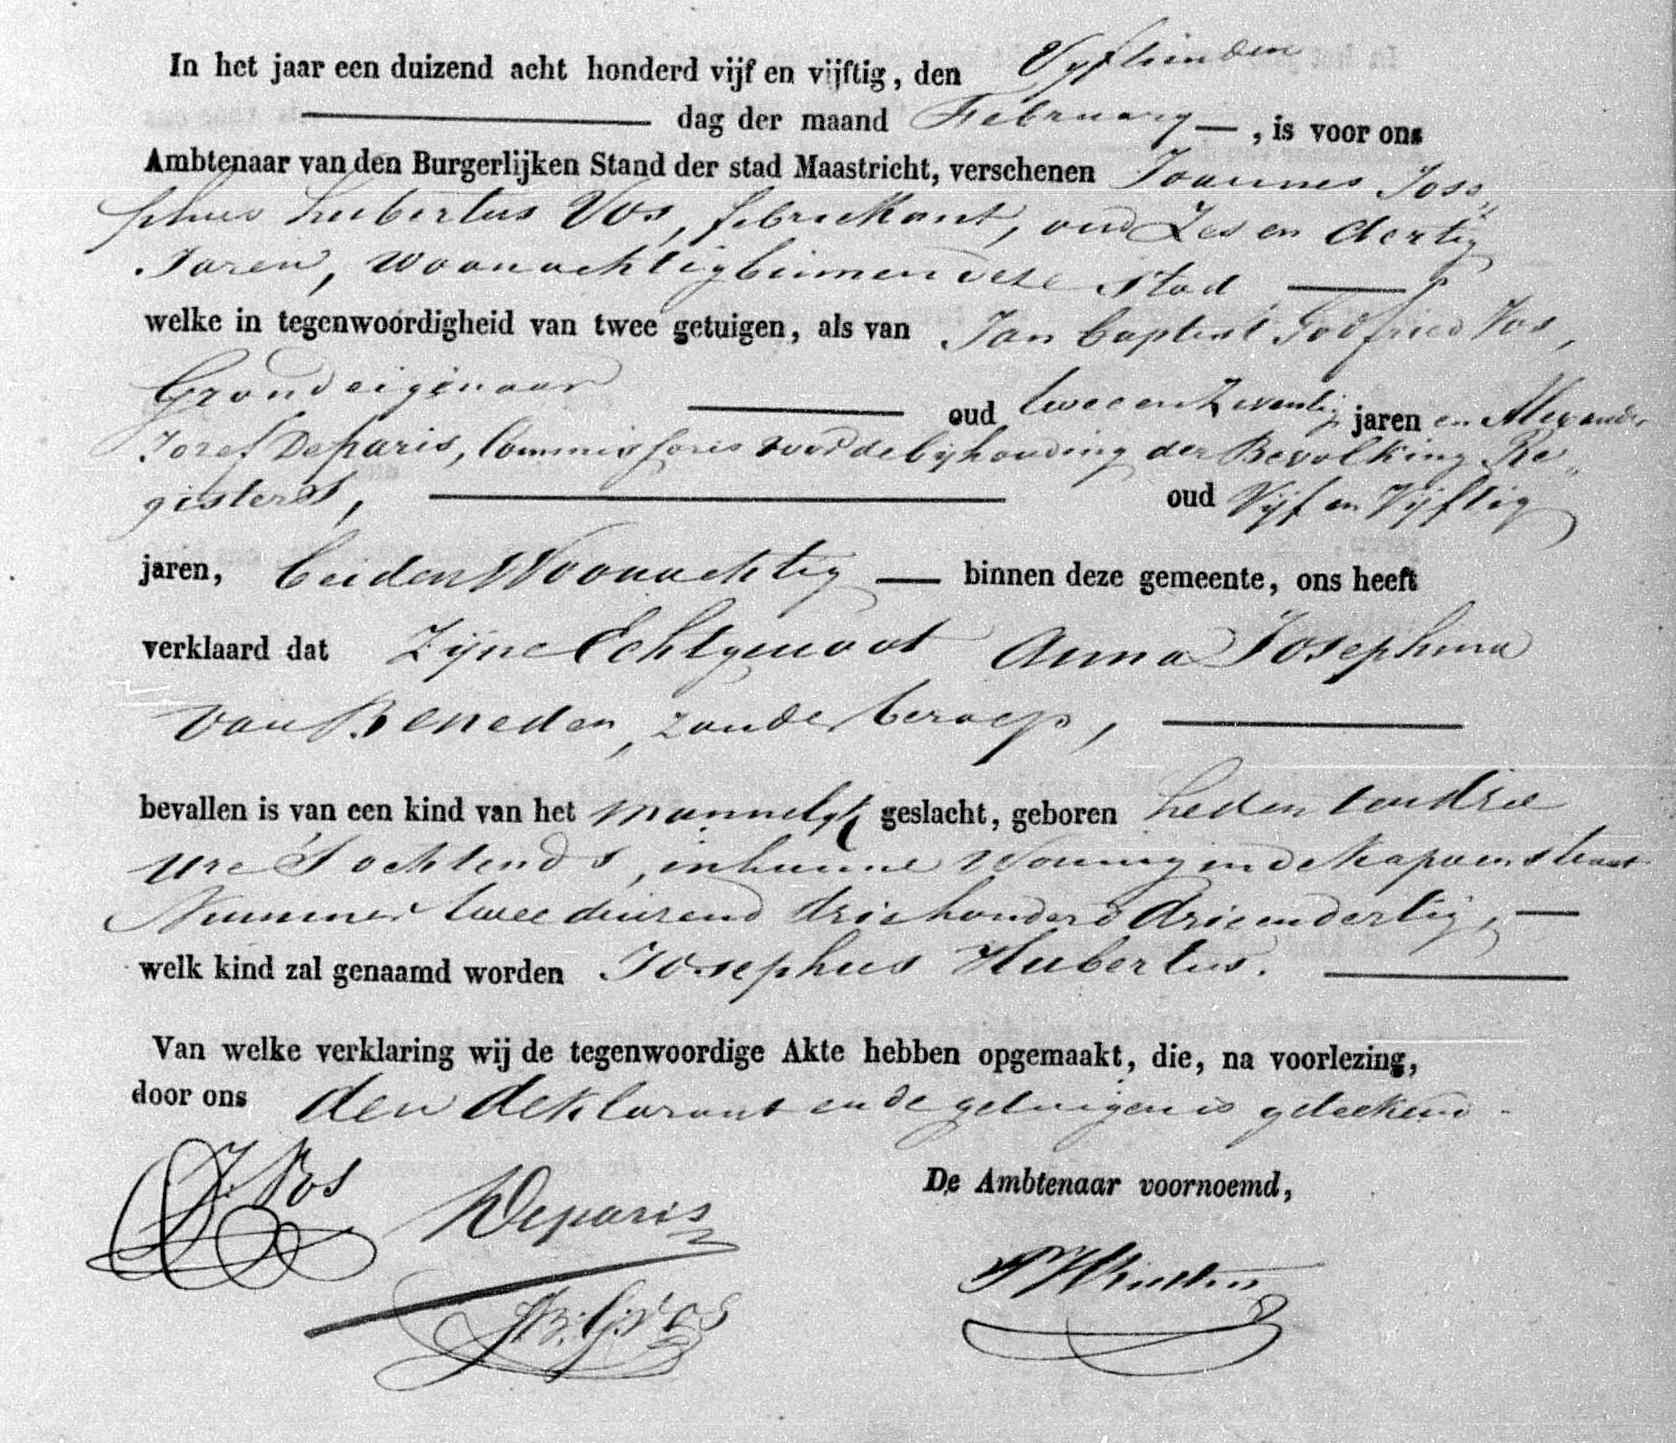 In het jaar een duizend acht honderd vijf en vijftig, den Vyftienden
dag der maand February, is voor ons
Ambtenaar van den Burgerlijken Stand der stad Maastricht, verschenen Joannes Jose„
phus hubertus Vos, fabriekant, oud Zes en dertig
Jaren, woonachtig binnen deze stad
welke in tegenwoordigheid van twee getuigen, als van Jan baptist Godfried Vos,
Grondeigenaar oud twee en Zeventig jaren en Alexander
Jozef Deparis, Commissaris voor de byhouding der Bevolking Re„
gisters, oud Vijf en Vijftig
jaren, beiden Woonachtig binnen deze gemeente, ons heeft
verklaard dat Zijne Echtgenoot Anna Josephina
van Beneden, zonder beroep,
bevallen is van een kind van het mannelyk geslacht, geboren heden ten drie
ure S'ochtends, in hunne Woning in de Kapoenstraat
Nummer twee duizend drie honderd drie en dertig,
welk kind zal genaamd worden Josephus Hubertus.
Van welke verklaring wij de tegenwoordige Akte hebben opgemaakt, die, na voorlezing,
door ons den deklarant en de getuigen is geteekend
J. Vos
Deparis
De Ambtenaar voornoemd,
J.B.G. Vos